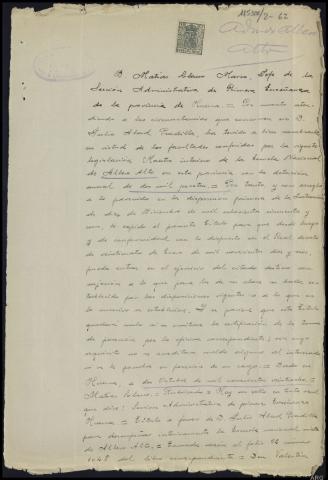 MSS00/2-62
Adnos Albero
Alto
D. Matías Solano Marco, Jefe de la
Sección Administrativa de Primera Enseñanza
de la provincia de Huesca = Por cuanto aten-
diendo a las circunstancias que concurren en D.
Julio Abad Pradilla, ha tenido a bien nombrarle
en virtud de las facultades conferidas por la vigente
legislación Maestro interino de la Escuela Nacional
de Albero Alto en esta provincia con la dotación
anual de dos mil pesetas = Por tanto, y con arreglo
a lo prevenido en la disposición primera de la Instrucción
de diez de Diciembre de mil ochocientos cincuenta y
uno, le expido el presente Título para que desde luego
y de conformidad con lo dispuesto en el Real decreto
de veintinueve de Enero de mil novecientos diez y nueve,
pueda entrar en el ejercicio del citado destino con
sujeción a lo que para los de su clase se halla es-
tablecido por las disposiciones vigentes o a lo que en
lo sucesivo se estableciere. Y se previene que este Título
quedará nulo si se omitiera la certificación de la toma
de posesión por la oficina correspondiente; sin cuyo
requisito no se acreditará sueldo alguno al interesado
ni se le pondrá en posesión de su cargo = Dado en
Huesca, a dos Octubre de mil novecientos veinticuatro =
Matías Solano = Rubricado = Hay un sello en tinta azul
que dice: Sección Administrativa de primera Enseñanza
Huesca = Título a favor de D. Julio Abad Pradilla
para desempeñar interinamente la Escuela nacional mixta
de Albero Alto = Queda al folio 26 número
1048 del libro correspondiente = Don Valentín